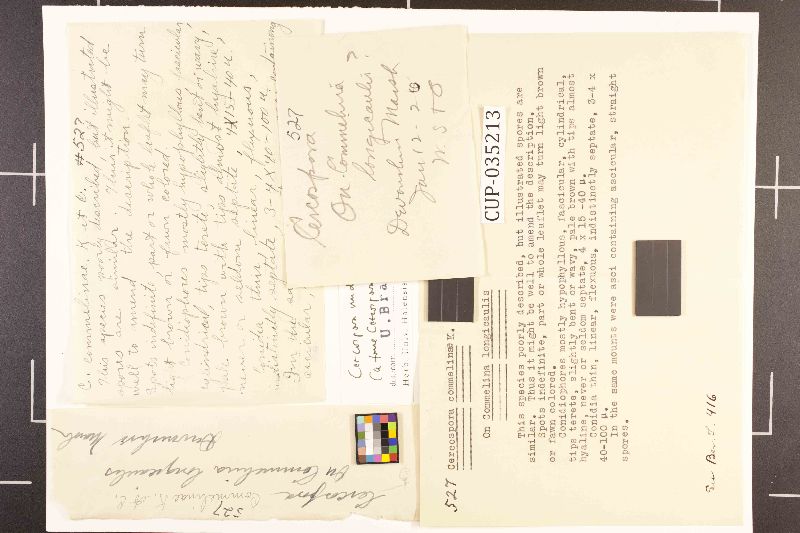 C. commelinae. K et Ci. #527
This species poorly described, but illustrated
spores are similar. Thus it might be
well to amend the description.
Spots indefinite, part or whole leaflet may turn
light brown or fawn colored.
Conidiophores mostly hypophyllous, fascicular,
cylindrical, tips terete, slightly bent or wavy,
pale brown with tips almost hyaline,
never or seldom septate 4 x 15-40 u.
Conidia thin, linear, flexuous,
indistinctly septate, 3-4 x 40-100 u.
In the same
acicular
527
Cercospora
On Commelina
longicaulis?
Devonshire Marsh
Jan 12-26
W S T O
CUP-035213
U.Bra
527 Cercospora commelinae K.
On Commelina longicaulis
This species poorly described, but illustrated spores are
similar. Thus it might be well to amend the description.
Spots indefinite, part or whole leaflet may turn light brown
or fawn colored.
Conidiophores mostly hypophyllous, fascicular, cylindrical,
tips terete, slightly bent or wavy, pale brown with tips almost
hyaline never or seldom septate, 4 x 15 -40 µ.
Conidia thin, linear, flexuous, indistinctly septate, 3-4 x
40-100 µ.
In the same mounts were asci containing ascicular, straight
spores.
527
Commelinae K. et C.
Cercospora
On Commelina longicaulis
Devonshire Marsh